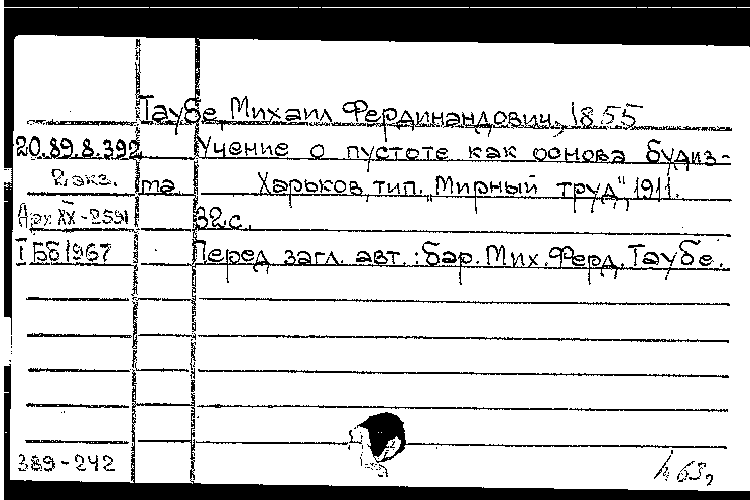 Таубе, Михаил Фердинандович, 1855
20.89.8.392 Учение о пустоте как основа будиз-
2 экз. ма Харьков, тип. „Мирный труд", 1911.
Арх XX-2591 32 с.
I Бб 1967 Перед загл. авт.: бар. Мих. Ферд. Таубе.
389-242